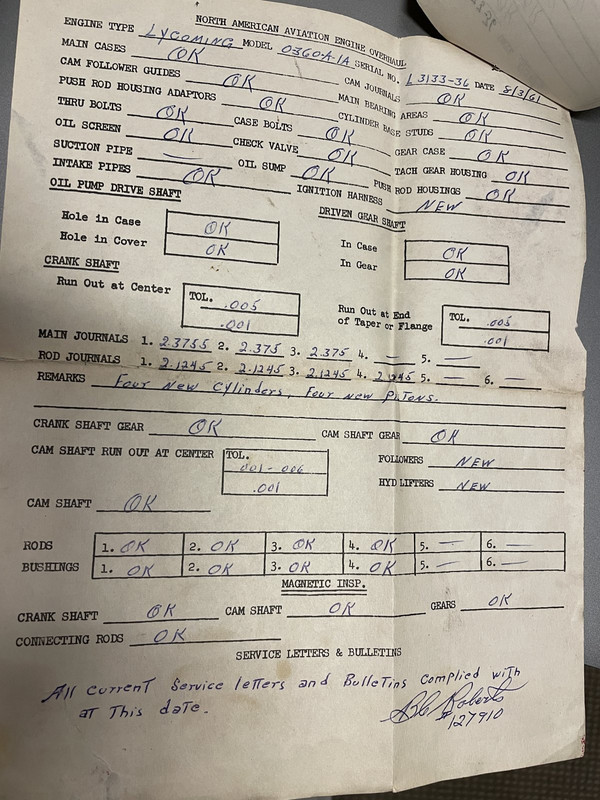 NORTH AMERICAN AVIATION ENGINE OVERHAUL
ENGINE TYPE LYCOMING MODEL O360-A-1A SERIAL NO. L 3133-36 DATE 8/3/61
MAIN CASES OK CAM JOURNALS OK
CAM FOLLOWER GUIDES OK MAIN BEARING AREAS OK
PUSH ROD HOUSING ADAPTORS OK CYLINDER BASE STUDS OK
THRU BOLTS OK CASE BOLTS OK GEAR CASE OK
OIL SCREEN OK CHECK VALVE OK TACH GEAR HOUSING OK
SUCTION PIPE — OIL SUMP OK PUSH ROD HOUSINGS OK
INTAKE PIPES OK IGNITION HARNESS NEW
OIL PUMP DRIVE SHAFT DRIVEN GEAR SHAFT
Hole in Case OK In Case OK
Hole in Cover OK In Gear OK
CRANK SHAFT
Run Out at Center TOL. .005 .001 Run Out at End of Taper or Flange TOL. .005 .001
MAIN JOURNALS 1. 2.3755 2. 2.375 3. 2.375 4. — 5. —
ROD JOURNALS 1. 2.1245 2. 2.1245 3. 2.1245 4. 2.1245 5. — 6. —
REMARKS Four New Cylinders, Four new Pistons.
CRANK SHAFT GEAR OK CAM SHAFT GEAR OK
CAM SHAFT RUN OUT AT CENTER TOL. .001 - .006 .001 FOLLOWERS NEW
HYD LIFTERS NEW
CAM SHAFT OK
RODS 1. OK 2. OK 3. OK 4. OK 5. — 6. —
BUSHINGS 1. OK 2. OK 3. OK 4. OK 5. — 6. —
MAGNETIC INSP.
CRANK SHAFT OK CAM SHAFT OK GEARS OK
CONNECTING RODS OK
SERVICE LETTERS & BULLETINS
All current Service letters and Bulletins complied with
at This date.
Roberts
#127910